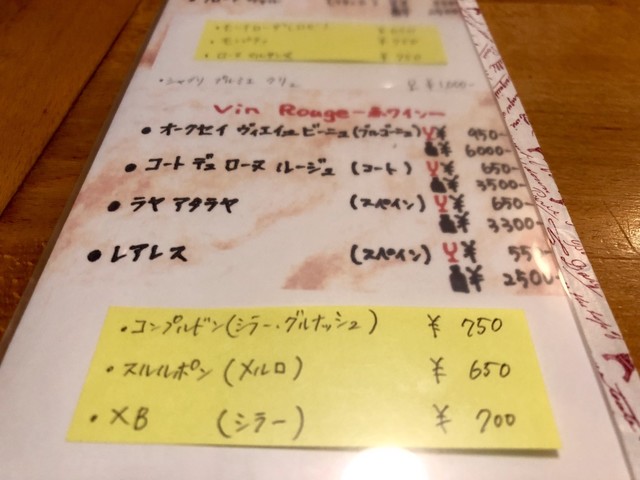 ¥750
・シャブリ プルミエ クリュ ¥1,000-
Vin Rouge-赤ワイン-
・オークセイ ヴィエイユ ビーニュ(ブルゴーニュ) ¥ 950-
¥ 6000-
・コート デュ ローヌ ルージュ (コート) ¥ 650-
¥ 3500-
・ラヤ アタラヤ (スペイン) ¥ 650-
¥ 3300-
・レアレス (スペイン) ¥
¥ 2500-
・コンプルドン(シラー・グルナッシュ) ¥ 750
・スルルポン(メルロ) ¥ 650
・XB (シラー) ¥ 700